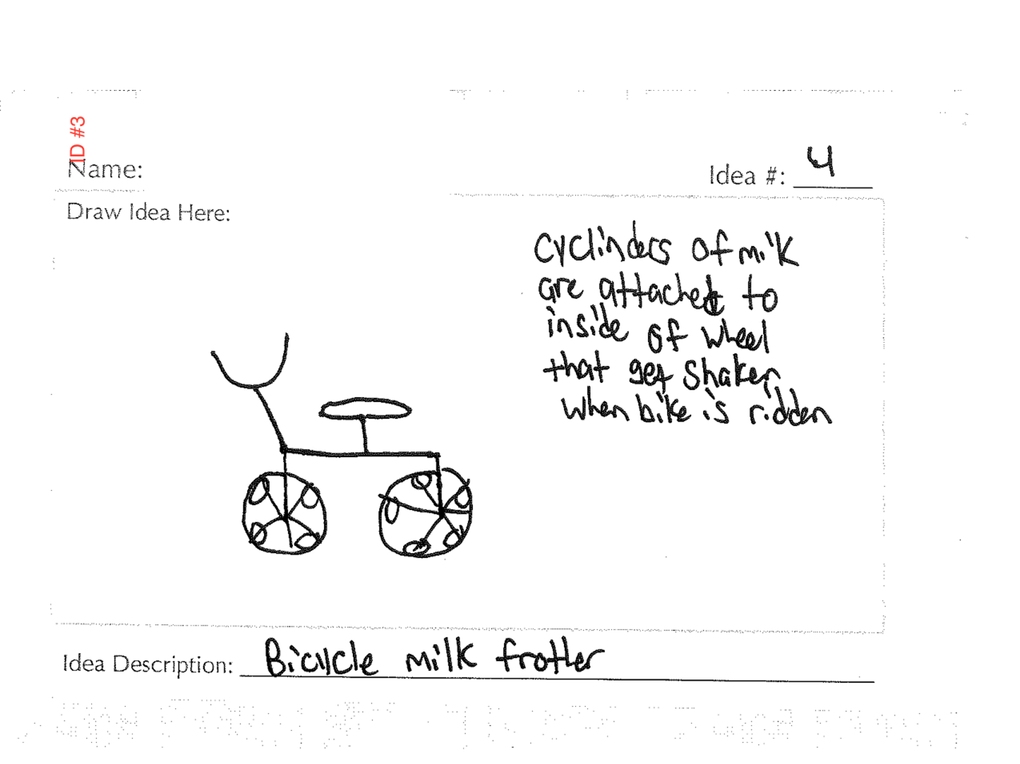 ID #3
Name:
Idea #: 4
Draw Idea Here:
cyclinders of milk
are attached to
inside of wheel
that get shaken
when bike is ridden
Idea Description: Bicycle milk frother